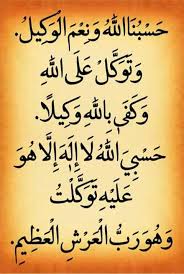 حَسْبُنَا اللهُ وَنِعْمَ الْوَكِيلُ.
وَتَوَكَّلْ عَلَى اللهِ
وَكَفَى بِاللهِ وَكِيلًا.
حَسْبِيَ اللهُ لَا إِلَهَ إِلَّا هُوَ
عَلَيْهِ تَوَكَّلْتُ
وَهُوَ رَبُّ الْعَرْشِ الْعَظِيمِ.